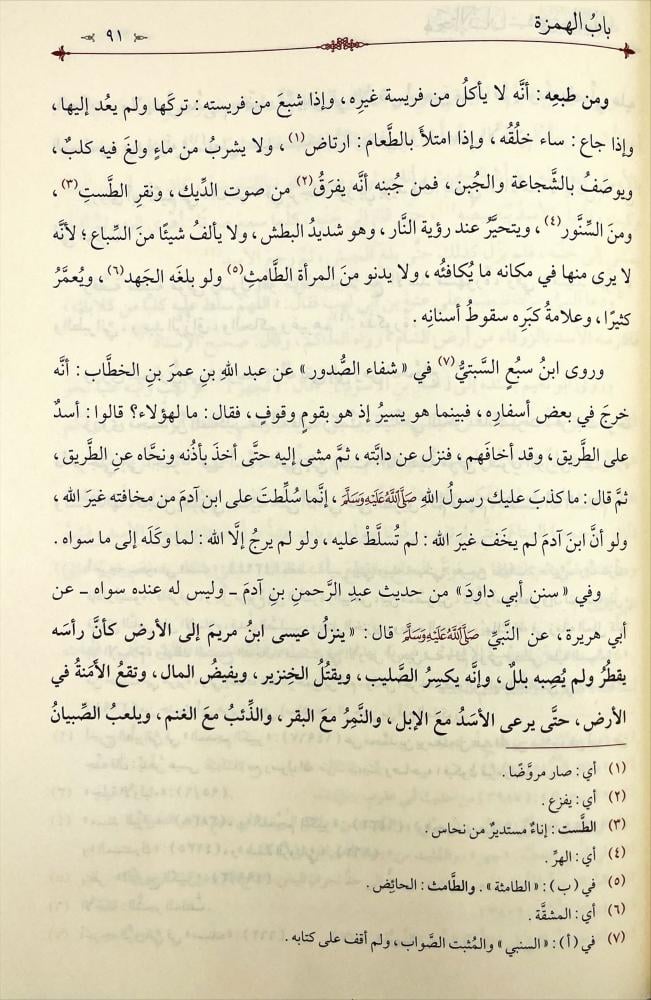 بابُ الهمزة
٩١
ومن طبعِه : أنَّه لا يأكلُ من فريسة غيرِه ، وإذا شبعَ من فريسته : تركَها ولم يعُد إليها ،
وإذا جاع : ساء خلُقُه ، وإذا امتلأَ بالطَّعام : ارتاض(١) ، ولا يشربُ من ماءٍ ولغَ فيه كلبٌ ،
ويوصَفُ بالشَّجاعة والجُبن ، فمن جُبنه أنَّه يفرَقُ(٢) من صوت الدِّيك ، ونقرِ الطَّستِ(٣) ،
ومنَ السِّنَّور(٤) ، ويتحيَّرُ عند رؤية النَّار ، وهو شديدُ البطش ، ولا يألفُ شيئًا منَ السِّباع ؛ لأنَّه
لا يرى منها في مكانه ما يُكافئُه ، ولا يدنو منَ المرأة الطَّامثِ(٥) ولو بلغَه الجَهد(٦) ، ويُعمَّرُ
كثيرًا ، وعلامةُ كبَرِه سقوطُ أسنانِه .
وروى ابنُ سبُعٍ السَّبتيُّ(٧) في « شفاء الصُّدور » عن عبد اللهِ بنِ عمرَ بنِ الخطَّاب : أنَّه
خرجَ في بعض أسفارِه ، فبينما هو يسيرُ إذ هو بقومٍ وقوفٍ ، فقال : ما لهؤلاء؟ قالوا : أسدٌ
على الطَّريق ، وقد أخافَهم ، فنزل عن دابَّته ، ثمَّ مشى إليه حتَّى أخذَ بأذُنه ونحَّاه عنِ الطَّريق ،
ثمَّ قال : ما كذبَ عليك رسولُ اللهِ ﷺ ، إنَّما سُلِّطتَ على ابن آدمَ من مخافته غيرَ الله ،
ولو أنَّ ابنَ آدمَ لم يخَف غيرَ الله : لم تُسلَّطْ عليه ، ولو لم يرجُ إلَّا الله : لما وكَلَه إلى ما سواه .
وفي « سنن أبي داودَ » من حديث عبدِ الرَّحمنِ بنِ آدمَ ـ وليس له عنده سواه ـ عن
أبي هريرة ، عن النَّبيِّ ﷺ قال : « ينزلُ عيسى ابنُ مريمَ إلى الأرض كأنَّ رأسَه
يقطُرُ ولم يُصِبه بللٌ ، وإنَّه يكسِرُ الصَّليب ، ويقتُلُ الخنزير ، ويفيضُ المال ، وتقعُ الأمَنةُ في
الأرض ، حتَّى يرعى الأسَدُ معَ الإبل ، والنَّمِرُ معَ البقر ، والذِّئبُ معَ الغنم ، ويلعبُ الصِّبيانُ
(١) أي : صار مروَّضًا .
(٢) أي : يفزع .
(٣) الطَّست : إناءٌ مستديرٌ من نحاس .
(٤) أي : الهرّ .
(٥) في (ب) : « الطامثة » . والطَّامث : الحائِض .
(٦) أي : المشقَّة .
(٧) في (أ) : « السنبي » والمُثبت الصَّواب ، ولم أقف على كتابه .